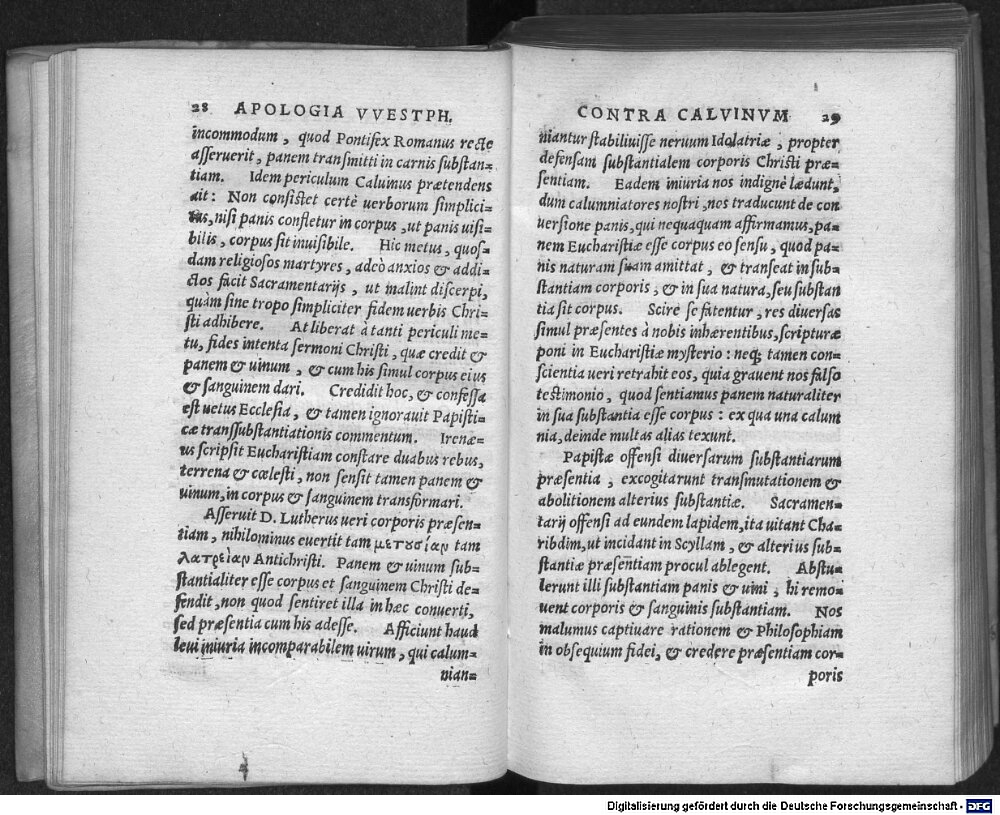 28 APOLOGIA VVESTPH.
incommodum, quod Pontifex Romanus recte
asseruerit, panem transmitti in carnis substan=
tiam. Idem periculum Caluinus prætendens
ait: Non consistet certè uerborum simplici=
tas, nisi panis confletur in corpus, ut panis uisi=
bilis, corpus sit inuisibile. Hic metus, quos=
dam religiosos martyres, adeò anxios & addi=
ctos facit Sacramentarijs, ut malint discerpi,
quàm sine tropo simpliciter fidem uerbis Chri=
sti adhibere. At liberat à tanti periculi me=
tu, fides intenta sermoni Christi, quæ credit &
panem & uinum, & cum his simul corpus eius
& sanguinem dari. Credidit hoc, & confessa
est uetus Ecclesia, & tamen ignorauit Papisti=
cæ transsubstantiationis commentum. Irenæ=
us scripsit Eucharistiam constare duabus rebus,
terrena & cœlesti, non sensit tamen panem &
uinum, in corpus & sanguinem transformari.
Asseruit D. Lutherus ueri corporis præsen=
tiam, nihilominus euertit tam μετουσίαν tam
λατρείαν Antichristi. Panem & uinum sub=
stantialiter esse corpus et sanguinem Christi de=
fendit, non quod sentiret illa in hæc conuerti,
sed præsentia cum his adesse. Afficiunt haud
leui iniuria incomparabilem uirum, qui calum=
nian=
CONTRA CALVINVM 29
niantur stabiliuisse neruum Idolatriæ, propter
defensam substantialem corporis Christi præ=
sentiam. Eadem iniuria nos indignè lædunt,
dum calumniatores nostri, nos traducunt de con
uersione panis, qui nequaquam affirmamus, pa=
nem Eucharistiæ esse corpus eo sensu, quod pa=
nis naturam suam amittat, & transeat in sub=
stantiam corporis, & in sua natura, seu substan
tia sit corpus. Scire se fatentur, res diuersas
simul præsentes à nobis inhærentibus, scripturæ
poni in Eucharistiæ mysterio: neq; tamen con=
scientia ueri retrahit eos, quia grauent nos falso
testimonio, quod sentiamus panem naturaliter
in sua substantia esse corpus: ex qua una calum
nia, deinde multas alias texunt.
Papistæ offensi diuersarum substantiarum
præsentia, excogitarunt transmutationem &
abolitionem alterius substantiæ. Sacramen=
tarij offensi ad eundem lapidem, ita uitant Cha=
ribdim, ut incidant in Scyllam, & alterius sub=
stantiæ præsentiam procul ablegent. Abstu=
lerunt illi substantiam panis & uini, hi remo=
uent corporis & sanguinis substantiam. Nos
malumus captiuare rationem & Philosophiam
in obsequium fidei, & credere præsentiam cor=
poris
Digitalisierung gefördert durch die Deutsche Forschungsgemeinschaft - DFG